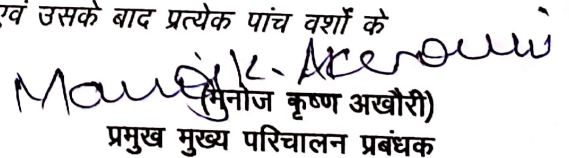 एवं उसके बाद प्रत्येक पांच वर्शो के
Manoj K. Akhouri
(मुनोज कृष्ण अखौरी)
प्रमुख मुख्य परिचालन प्रबंधक